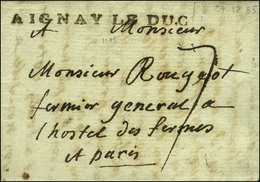 AIGNAY LE DUC
A Monsieur
Monsieur Rougeot
fermier general a
l'hostel des fermes
A paris
7